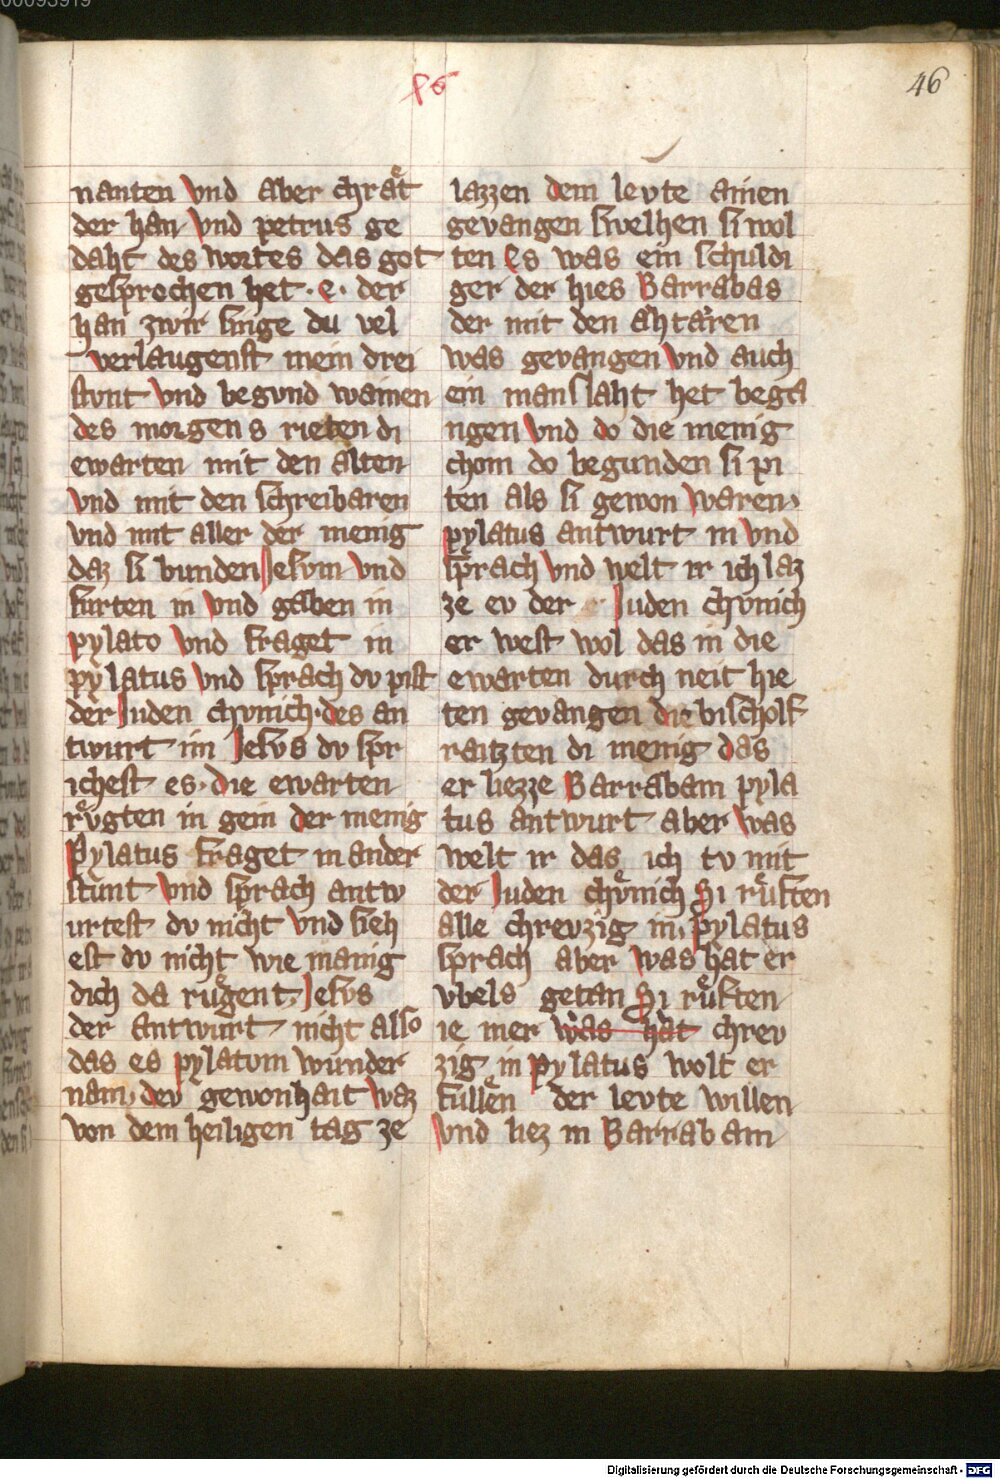 00093919
46
nanten vnd aber chraͤt
der han vnd petrus ge
daht des wortes das got
gesprochen het · e · der
han zwir singe du vel
verlaugenst mein drei
stvnt vnd begvnd wainen
des morgens rieten di
ewarten mit den alten
vnd mit den schreibaren
vnd mit aller der menig
daz si bunden Jesvm vnd
furten in vnd gaben in
pylato vnd fraget in
pylatus vnd sprach dv pist
der Juden chvnich · des an
twurt im Jesvs dv spr
ichest es · die ewarten
rvͤgten in gein der menig
Pylatus fraget in ander
stunt vnd sprach antw
urtest dv nicht vnd sieh
est dv nicht wie manig
dich da ruͤgent · Jesvs
der antwurt nicht also
das es pylatom wunder
nam, dev gewonhait waz
von dem heiligen tag ze
lazzen dem levte ainen
gevangen swelhen si wol
ten Es was ein schuldi
ger der hies Barrabas
der mit den ahtaͤren
was gevangen vnd auch
ein manslaht het bega
ngen vnd do die menig
chom do begunden si pi
ten als si gewon waren ·
pylatus antwurt in vnd
sprach vnd welt ir ich laz
ze ev der Juden chvnich
er west wol das in die
ewarten durch neit hie
ten gevangen die bischolf
raitzten di menig das
er liezze Barrabam pyla
tus antwurt aber was
welt ir das ich tv mit
der Juden chvͤnich Si ruͤften
alle chrevzig in, pylatus
sprach aber was hat er
vbels getan Si ruͤften
ie mer was hat chrev
zig in pylatus wolt er
fullen der levte willen
vnd liez in Barrabam
Digitalisierung gefördert durch die Deutsche Forschungsgemeinschaft - DFG